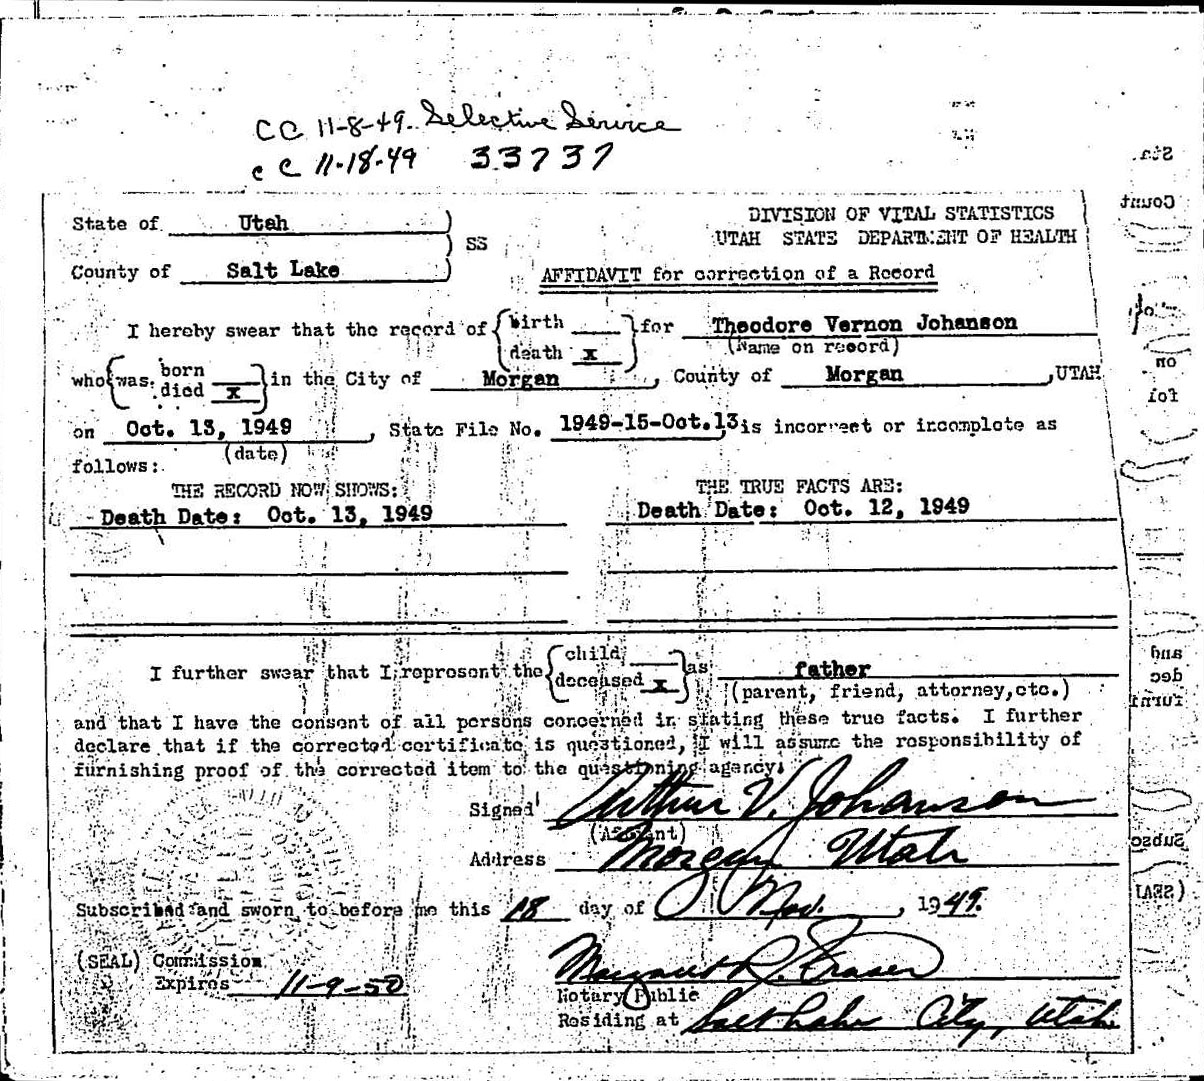 CC 11-8-49. Selective Service
CC 11-18-49 33737
State of Utah ) DIVISION OF VITAL STATISTICS
) SS UTAH STATE DEPARTMENT OF HEALTH
County of Salt Lake ) AFFIDAVIT for correction of a Record
I hereby swear that the record of { birth ___ death x } for Theodore Vernon Johanson
(Name on record)
who { was born ___ died x } in the City of Morgan, County of Morgan, UTAH
on Oct. 13, 1949, State File No. 1949-15-Oct.13 is incorrect or incomplete as
(date)
follows:
THE RECORD NOW SHOWS: THE TRUE FACTS ARE:
Death Date: Oct. 13, 1949 Death Date: Oct. 12, 1949
I further swear that I represent the { child ___ deceased x } as father
(parent, friend, attorney, etc.)
and that I have the consent of all persons concerned in stating these true facts. I further
declare that if the corrected certificate is questioned, I will assume the responsibility of
furnishing proof of the corrected item to the questioning agency.
Signed Arthur V. Johanson
(Affiant)
Address Morgan Utah
Subscribed and sworn to before me this 18 day of Nov., 1949.
(SEAL) Commission Margaret R. Fraser
Expires 11-9-50 Notary Public
Residing at Salt Lake City, Utah